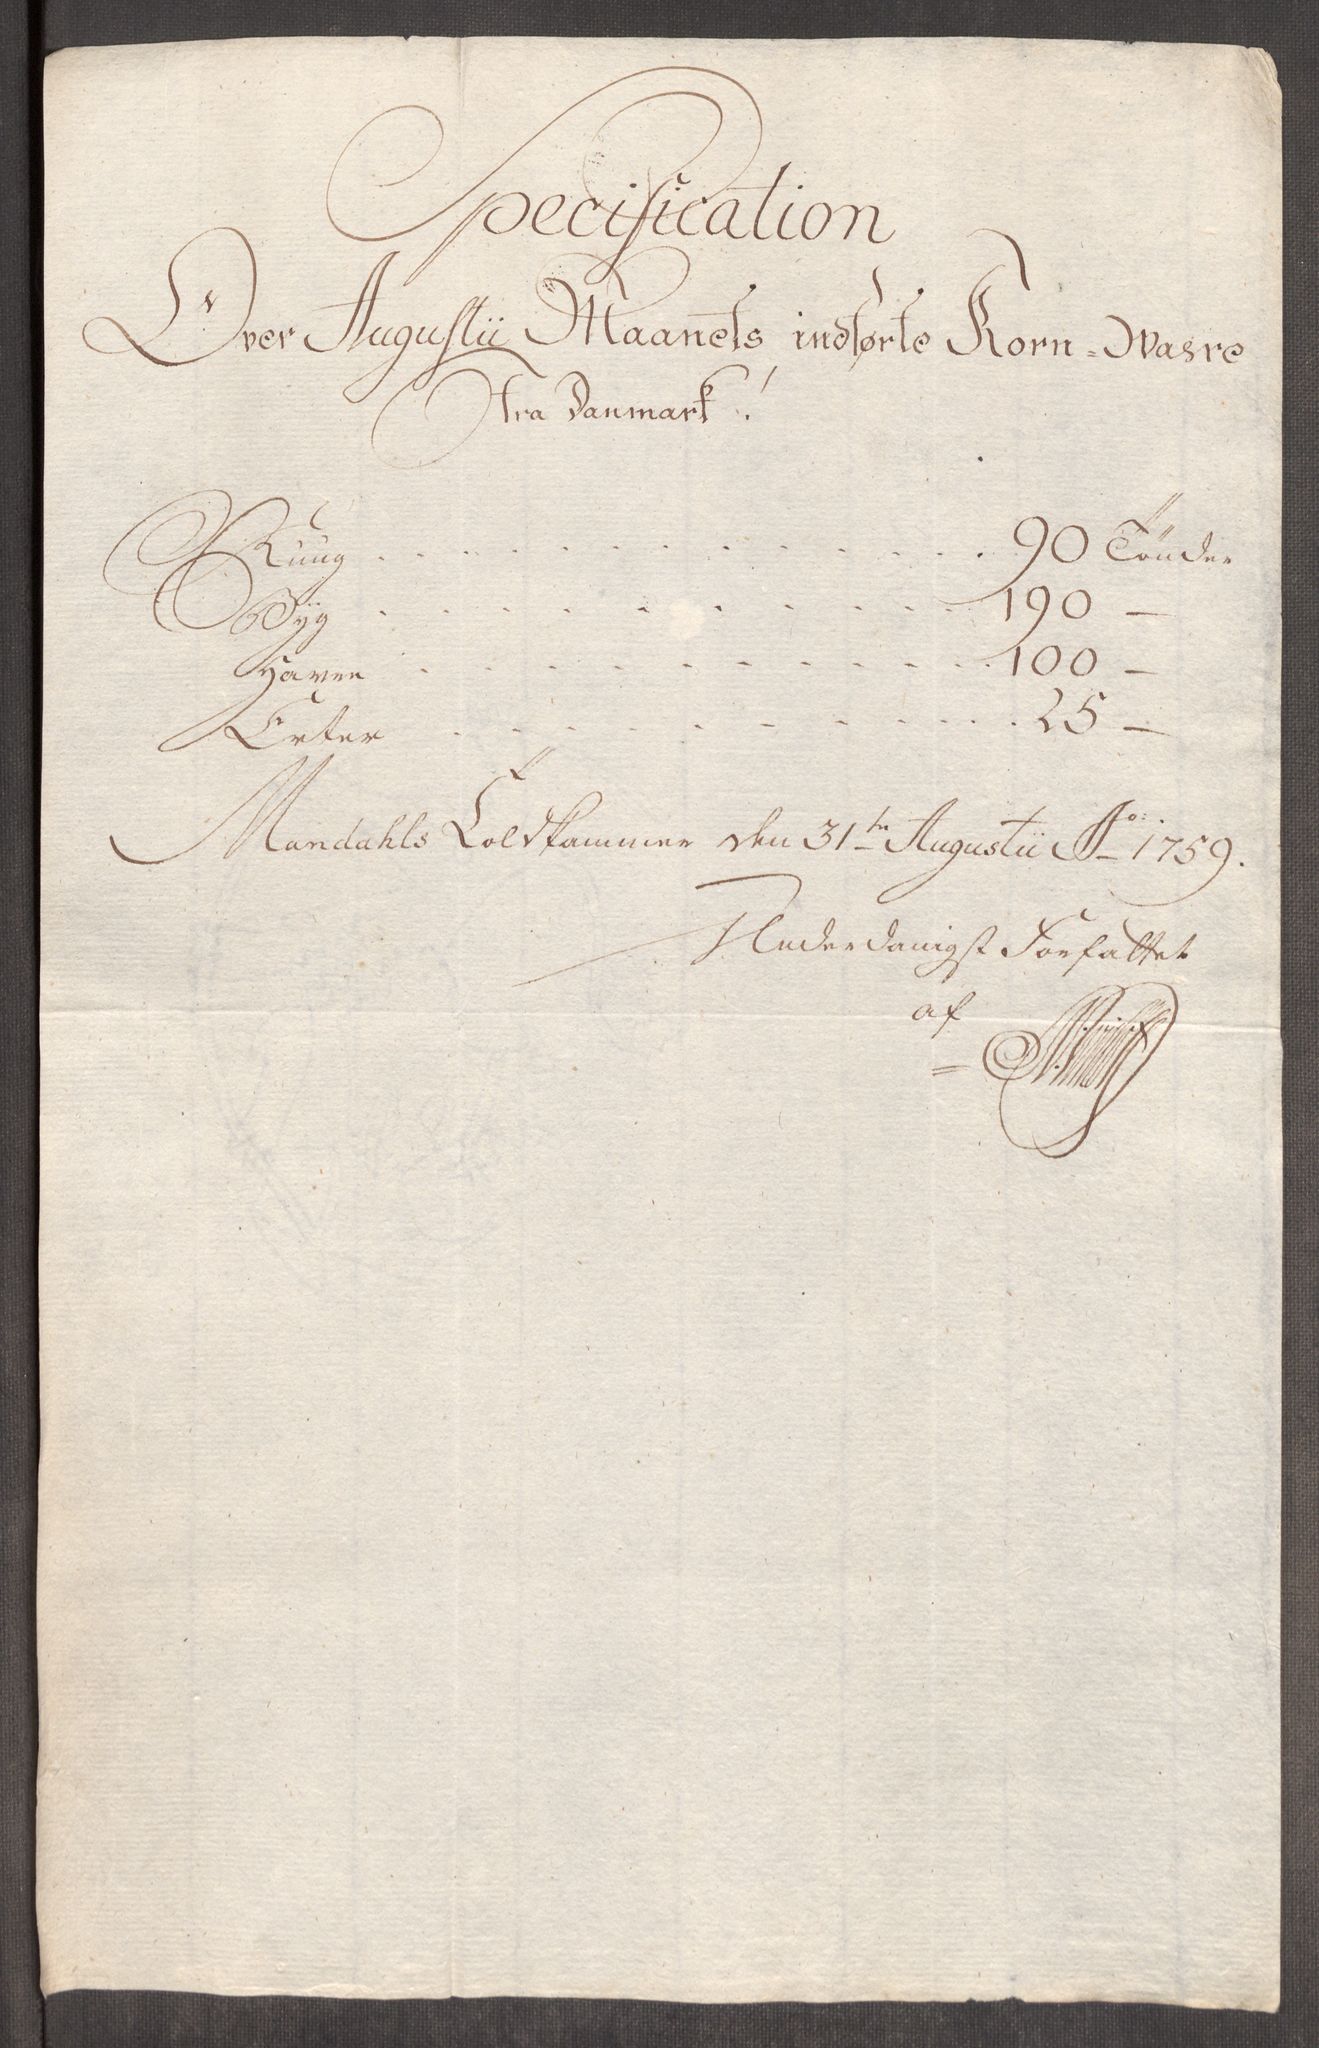 Specification
Over Augustii Maanets indførte Korn-Wahre
Fra Danmark!
Ruug . . . . . . . . . . . . . . 90 Tönder
Byg . . . . . . . . . . . . 190 —
Haver . . . . . . . . . . . . 100 —
Erter . . . . . . . . . . . . 25 —
Mandahls Toldkammer den 31te Augustii Ao: 1759.
Underdanigst Forfattet
af